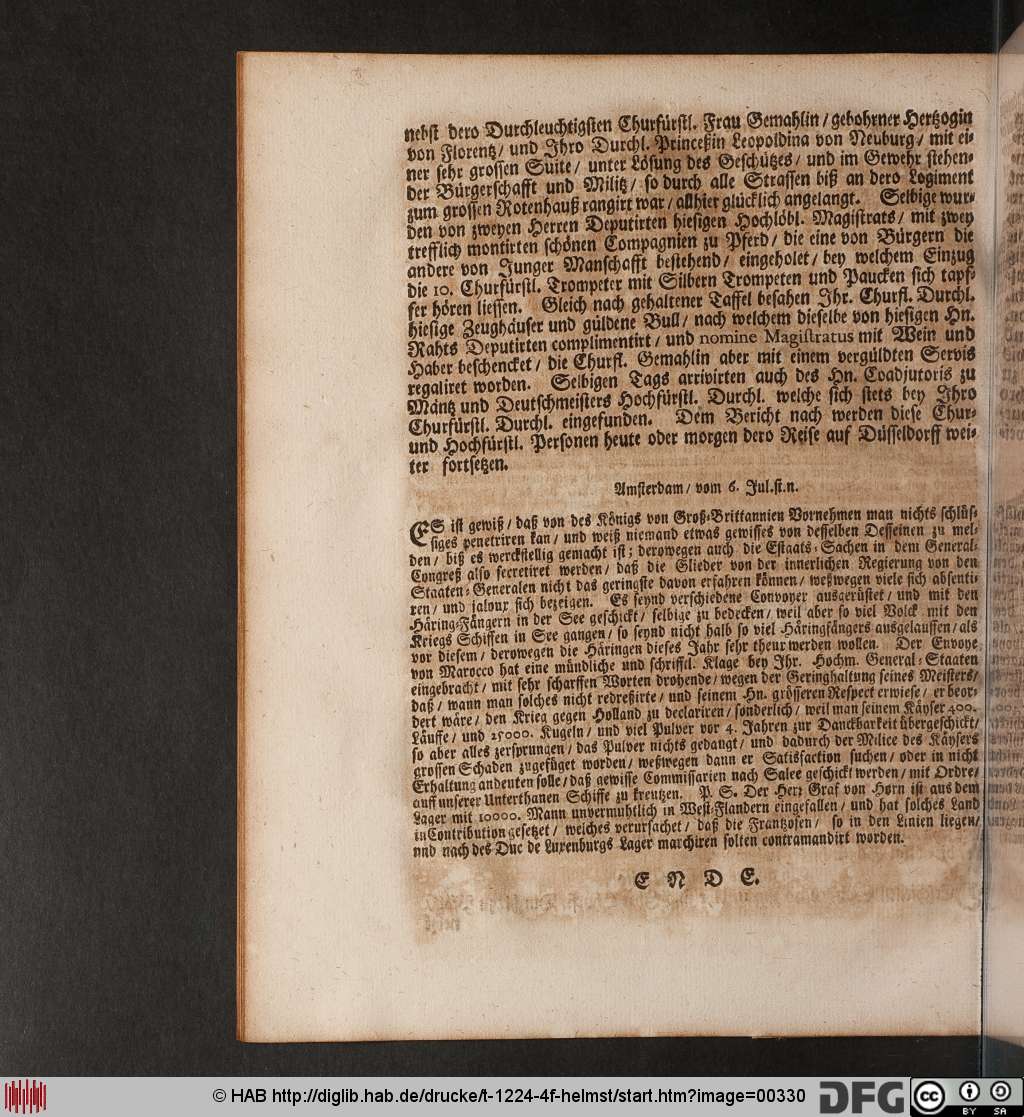 nebst dero Durchleuchtigsten Churfürstl. Frau Gemahlin / gebohrner Hertzogin
von Florentz / und Ihro Durchl. Princeßin Leopoldina von Neuburg / mit ei-
ner sehr grossen Suite / unter Lösung des Geschützes / und im Gewehr stehen-
der Bürgerschafft und Militz / so durch alle Strassen biß an dero Logiment
zum grossen Rotenhauß rangirt war / allhier glücklich angelangt. Selbige wur-
den von zweyen Herren Deputirten hiesigen Hochlöbl. Magistrats / mit zwey
trefflich montirten schönen Compagnien zu Pferd / die eine von Bürgern die
andere von Junger Manschafft bestehend / eingeholet / bey welchem Einzug
die 10. Churfürstl. Trompeter mit Silbern Trompeten und Paucken sich tapf-
fer hören liessen. Gleich nach gehaltener Taffel besahen Ihr. Churfl. Durchl.
hiesige Zeughäuser und güldene Bull / nach welchem dieselbe von hiesigen Hn.
Rahts Deputirten complimentirt / und nomine Magistratus mit Wein und
Haber beschencket / die Churfl. Gemahlin aber mit einem vergüldten Servis
regaliret worden. Selbigen Tags arrivirten auch des Hn. Coadjutoris zu
Mäntz und Deutschmeisters Hochfürstl. Durchl. welche sich stets bey Ihro
Churfürstl. Durchl. eingefunden. Dem Bericht nach werden diese Chur-
und Hochfürstl. Personen heute oder morgen dero Reise auf Düsseldorff wei-
ter fortsetzen.
Amsterdam / vom 6. Jul. st. n.
ES ist gewiß / daß von des Königs von Groß-Brittannien Vornehmen man nichts schlüs-
siges penetriren kan / und weiß niemand etwas gewisses von desselben Desseinen zu mel-
den / biß es werckstellig gemacht ist ; derowegen auch die Estaats-Sachen in dem General-
Congreß also secretiret werden / daß die Glieder von der innerlichen Regierung von den
Staaten-Generalen nicht das geringste davon erfahren können / weßwegen viele sich absenti-
ren / und jaloux sich bezeigen. Es seynd verschiedene Convoyer ausgerüstet / und mit den
Häring-Fängern in der See geschickt / selbige zu bedecken / weil aber so viel Volck mit den
Kriegs Schiffen in See gangen / so seynd nicht halb so viel Häringfängers ausgelauffen / als
vor diesem / derowegen die Häringen dieses Jahr sehr theur werden wollen. Der Envoye
von Marocco hat eine mündliche und schriftl. Klage bey Ihr. Hochm. General-Staaten
eingebracht / mit sehr scharffen Worten drohende / wegen der Geringhaltung seines Meisters /
daß / wann man solches nicht redreßirte / und seinem Hn. grösseren Respect erwiese / er beor-
dert wäre / den Krieg gegen Holland zu declariren / sonderlich / weil man seinem Käyser 400.
Läuffe / und 25000. Kugeln / und viel Pulver vor 4. Jahren zur Danckbarkeit übergeschickt /
so aber alles zersprungen / das Pulver nichts gedaugt / und dadurch der Milice des Käysers
grossen Schaden zugefüget worden / weßwegen dann er Satisfaction suchen / oder in nicht
Erhaltung andeuten solle / daß gewisse Commissarien nach Salee geschickt werden / mit Ordre /
auff unserer Unterthanen Schiffe zu kreutzen. P. S. Der Herr Graf von Horn ist aus dem
Lager mit 10000. Mann unvermuhtlich in West-Flandern eingefallen / und hat solches Land
in Contribution gesetzet / welches verursachet / daß die Frantzosen / so in den Linien liegen /
und nach des Duc de Luxenburgs Lager marchiren solten contramandirt worden.
E N D E.
© HAB http://diglib.hab.de/drucke/t-1224-4f-helmst/start.htm?image=00330
DFG
cc
BY SA